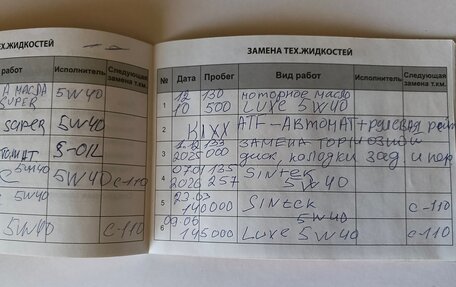 Х.ЖИДКОСТЕЙ
работ
Исполнитель
Следующая
замена т.км.
А МАСЛА
SUPER
5W40
SUPER
5W40
S-OIL
5W40
5W40
С-110
5W40
5W40
С-110
ЗАМЕНА ТЕХ.ЖИДКОСТЕЙ
№ Дата Пробег Вид работ Исполнитель Следующая
замена т.км.
1 12 130 моторное масло
10 500 LUXE 5W40
2 KIXX ATF-АВТОМАТ+рулевая рей
3 133 ЗАМЕНА ТОРМОЗНОЙ
2025 000 диск, колодки зад и пер
4 07.01 135 SinteK
2026 257 5W40
5 23.03 SINtcK С-110
140000 5W40
6 09.06
145000 Luxe 5W40 С-110